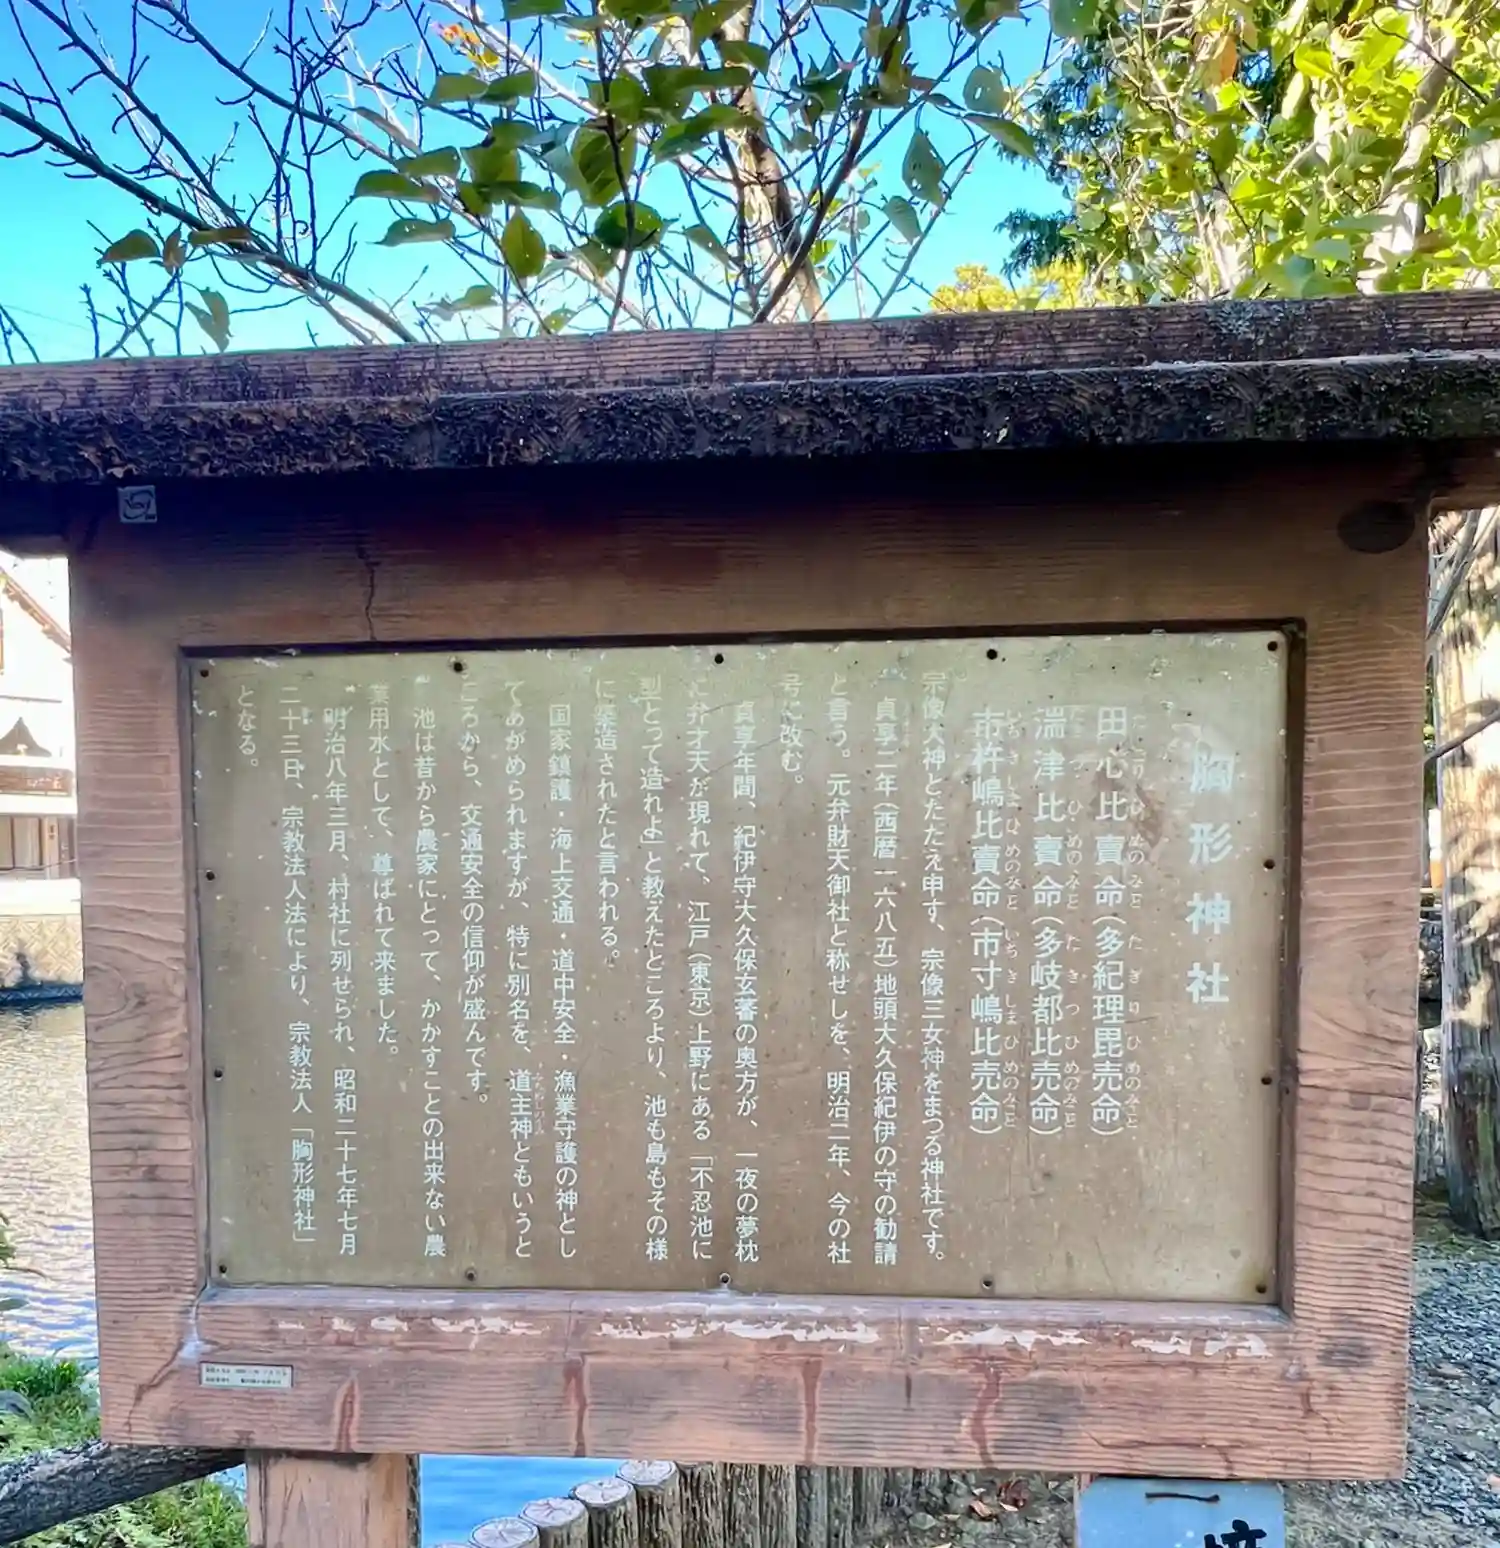 胸形神社
田心比賣命（多紀理毘売命）
湍津比賣命（多岐都比売命）
市杵嶋比賣命（市寸嶋比売命）
宗像大神とたたえ申す、宗像三女神をまつる神社です。
貞享二年（西暦一六八五）地頭大久保紀伊の守の勧請
と言う。元弁財天御社と称せしを、明治二年、今の社
号に改む。
貞享年間、紀伊守大久保玄蕃の奥方が、一夜の夢枕
に弁才天が現れて、江戸（東京）上野にある「不忍池に
型とって造れよ」と教えたところより、池も島もその様
に築造されたと言われる。
国家鎮護・海上交通・道中安全・漁業守護の神とし
てあがめられますが、特に別名を、道主神ともいうと
ころから、交通安全の信仰が盛んです。
池は昔から農家にとって、かかすことの出来ない農
業用水として、尊ばれて来ました。
明治八年三月、村社に列せられ、昭和二十七年七月
二十三日、宗教法人法により、宗教法人「胸形神社」
となる。